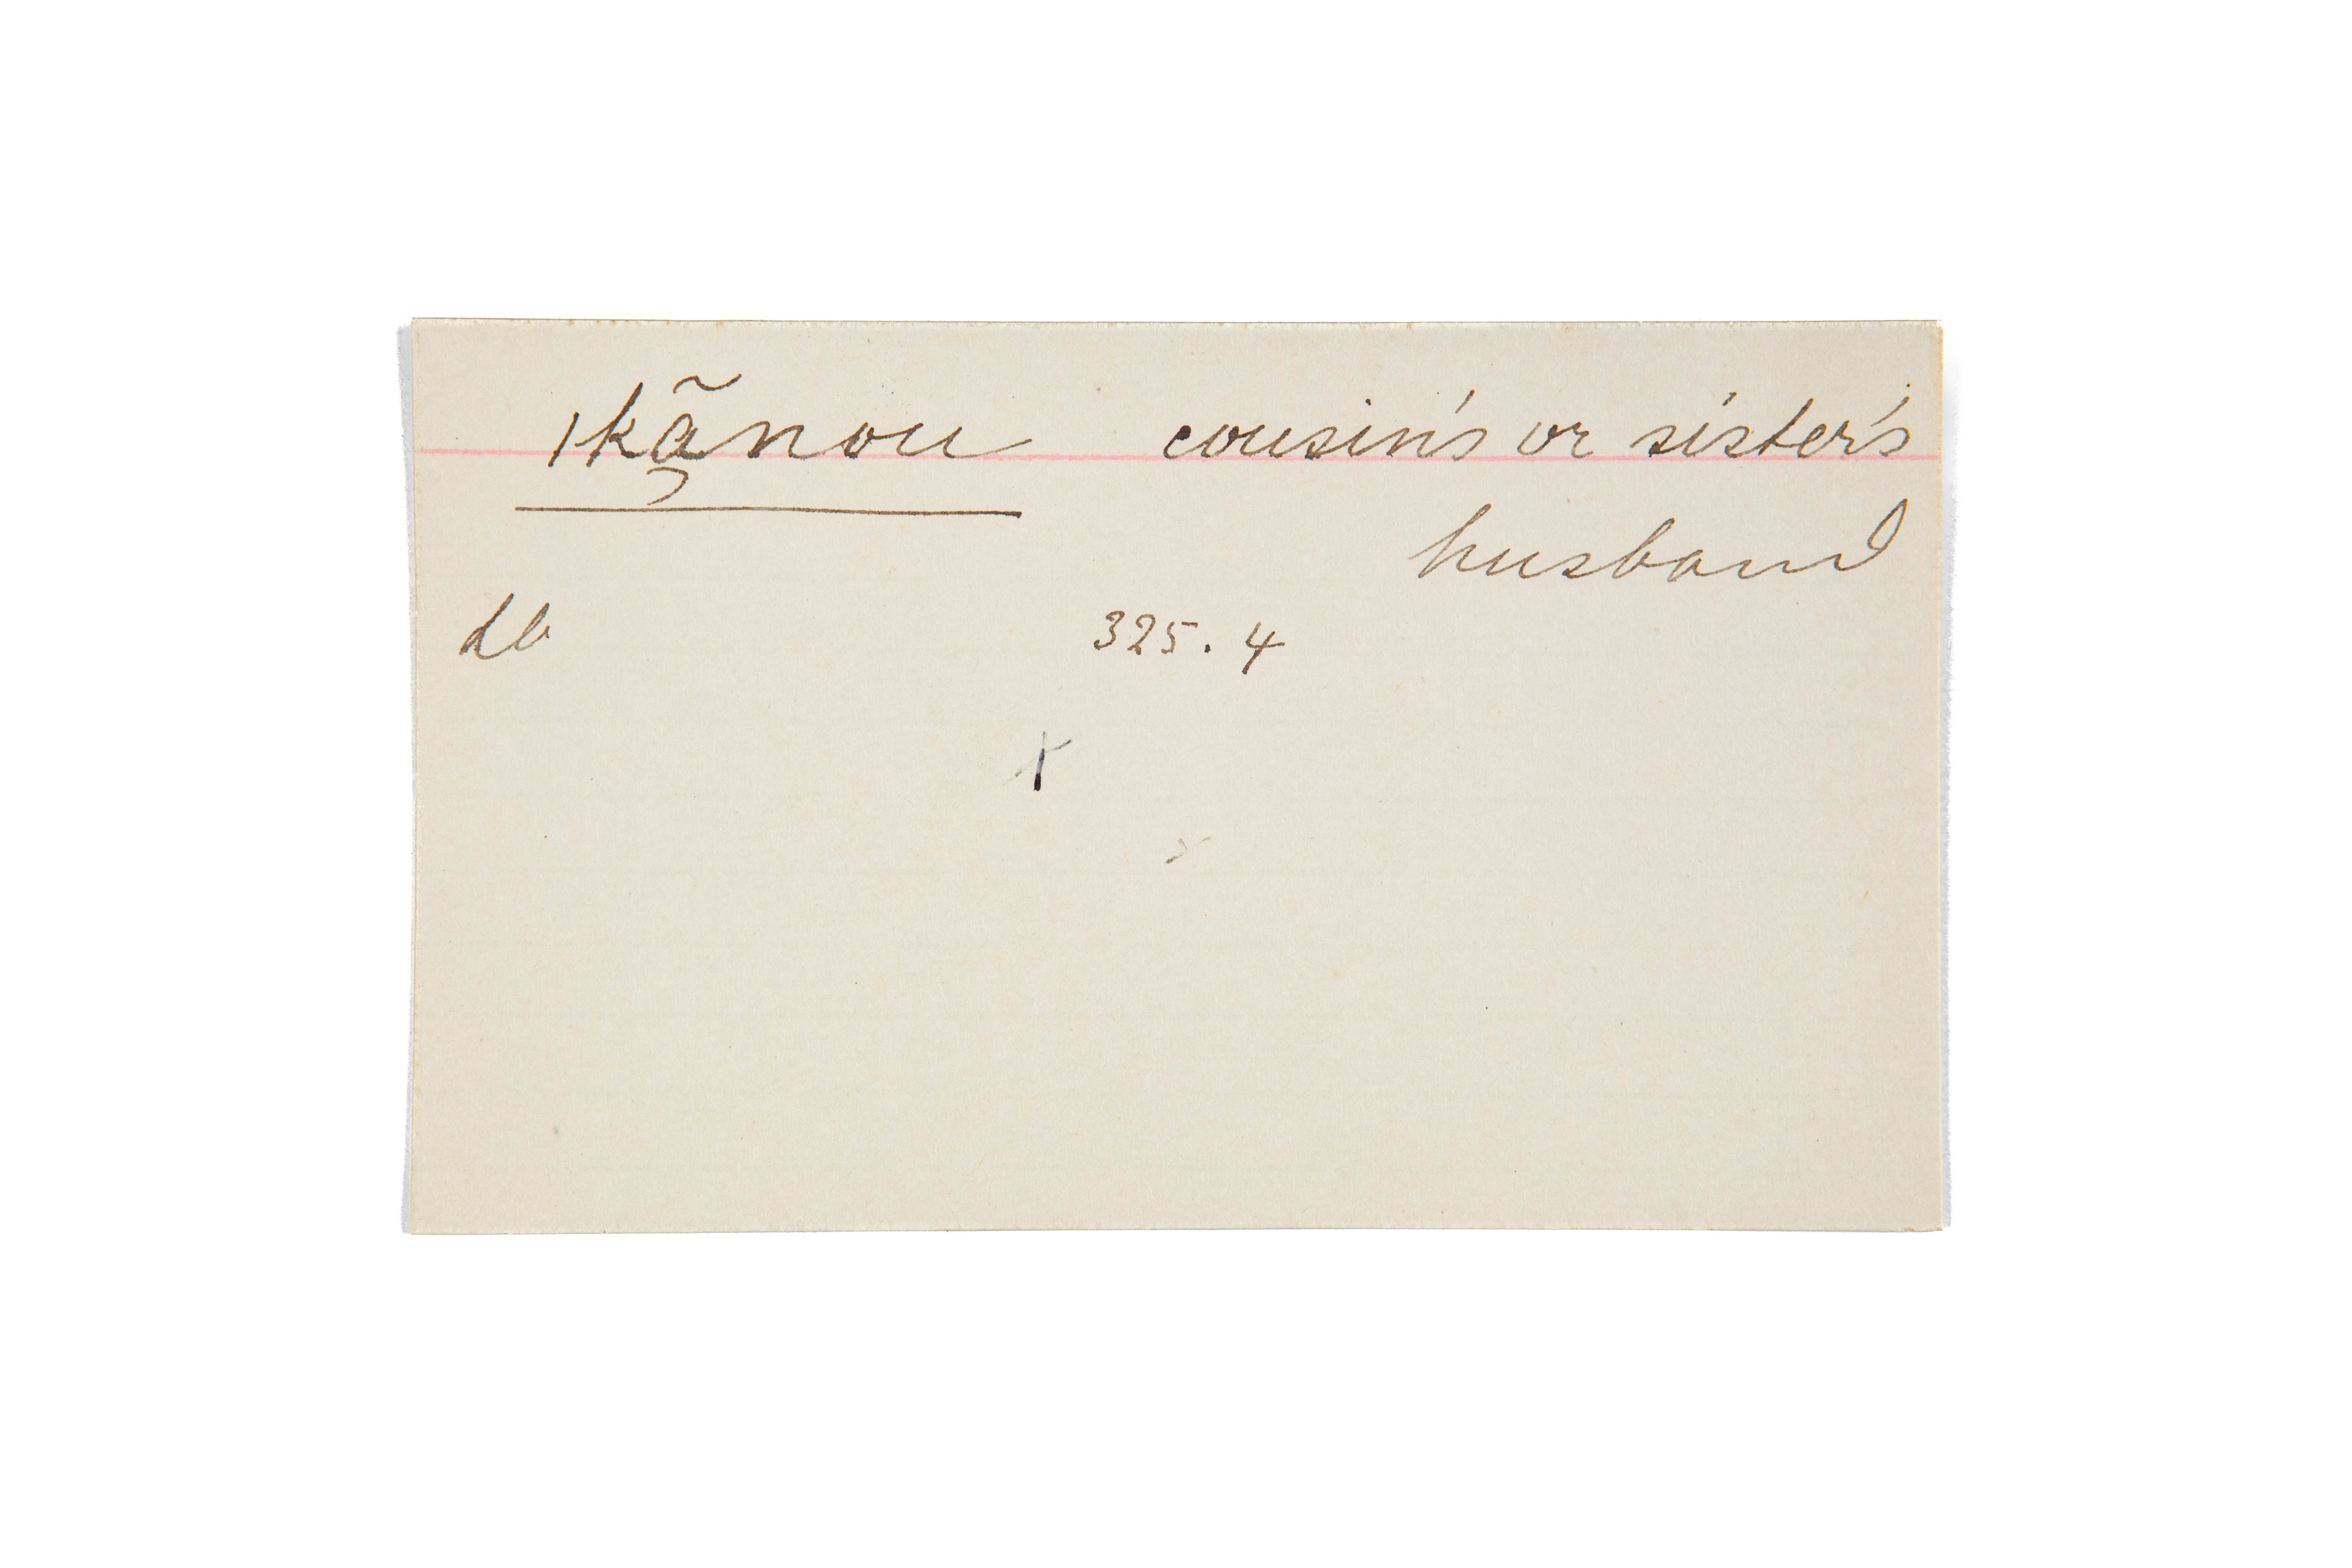 ıką̃nou cousin's or sister's
husband
db 325.4
x
x